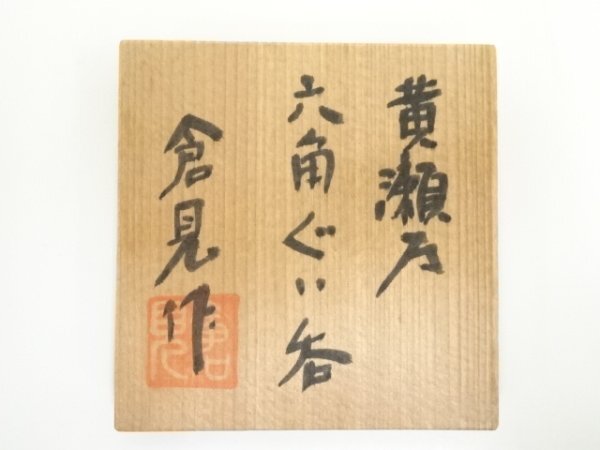 黄瀬戸
六角ぐい呑
倉見作